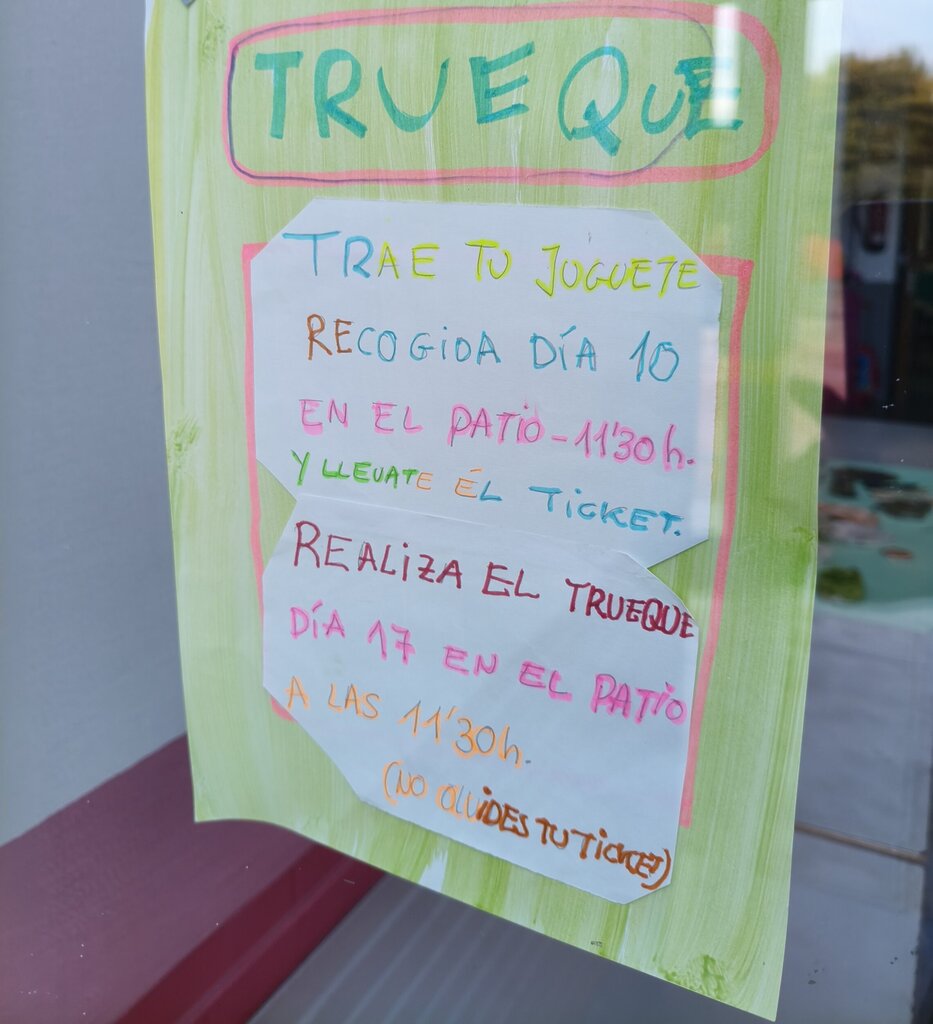 TRUEQUE
TRAE TU JUGUETE
RECOGIDA DÍA 10
EN EL PATIO - 11'30h.
Y LLEVATE ÉL TICKET.
REALIZA EL TRUEQUE
DÍA 17 EN EL PATIO
A LAS 11'30h.
(NO OLVIDES TU TICKET)